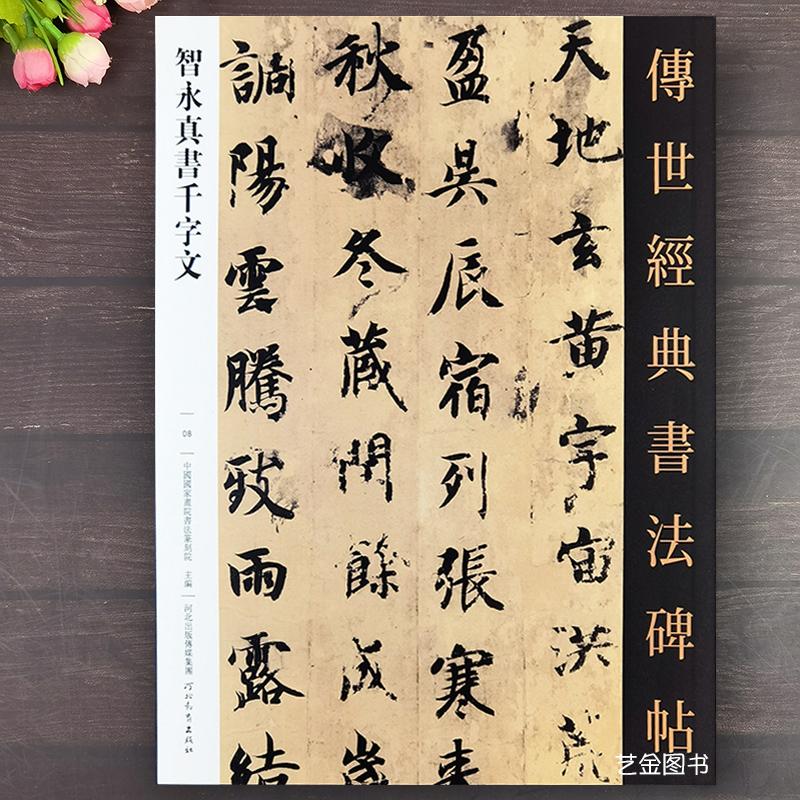 傳世經典書法碑帖
天地玄黄宇宙洪荒
盈昃辰宿列張寒来
秋收冬藏閏餘成歲
調陽雲騰致雨露結
智永真書千字文
08
中國國家畫院書法篆刻院 主編
河北出版傳媒集團
河北教育出版社
艺金图书